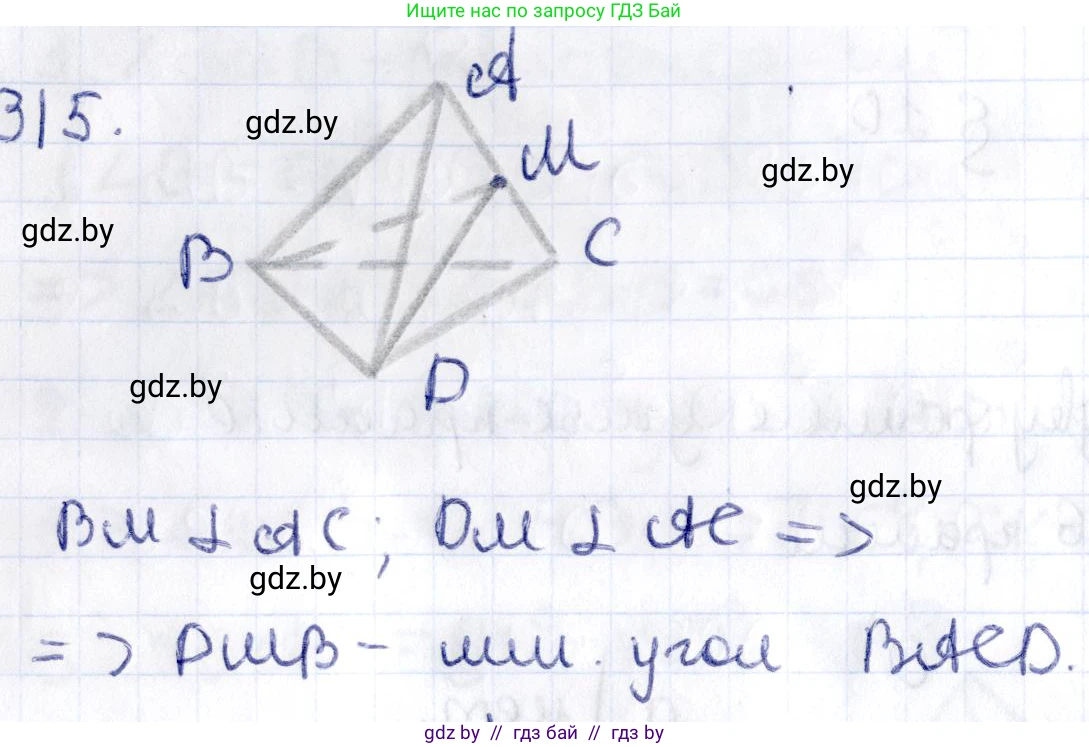 Ищите нас по запросу ГДЗ Бай
315.
A
gdz.by
M
gdz.by
gdz.by
B
C
gdz.by
D
gdz.by
BM ⊥ AC; DM ⊥ AC =>
gdz.by
=> DMB - лин. угол BACD.
gdz.by // гдз бай // гдз by